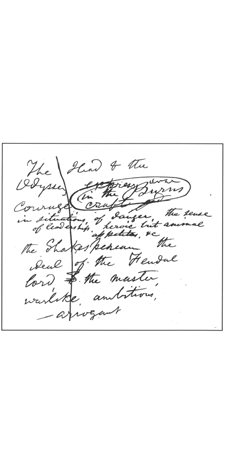 The Iliad & the
Odyssey express war
in the Burns
Courage
in situations of danger, the sense
of leadership, heroic but animal
appetites, &c
the Shakespearean the
ideal of the Feudal
lord & the master,
warlike, ambitious,
— arrogant